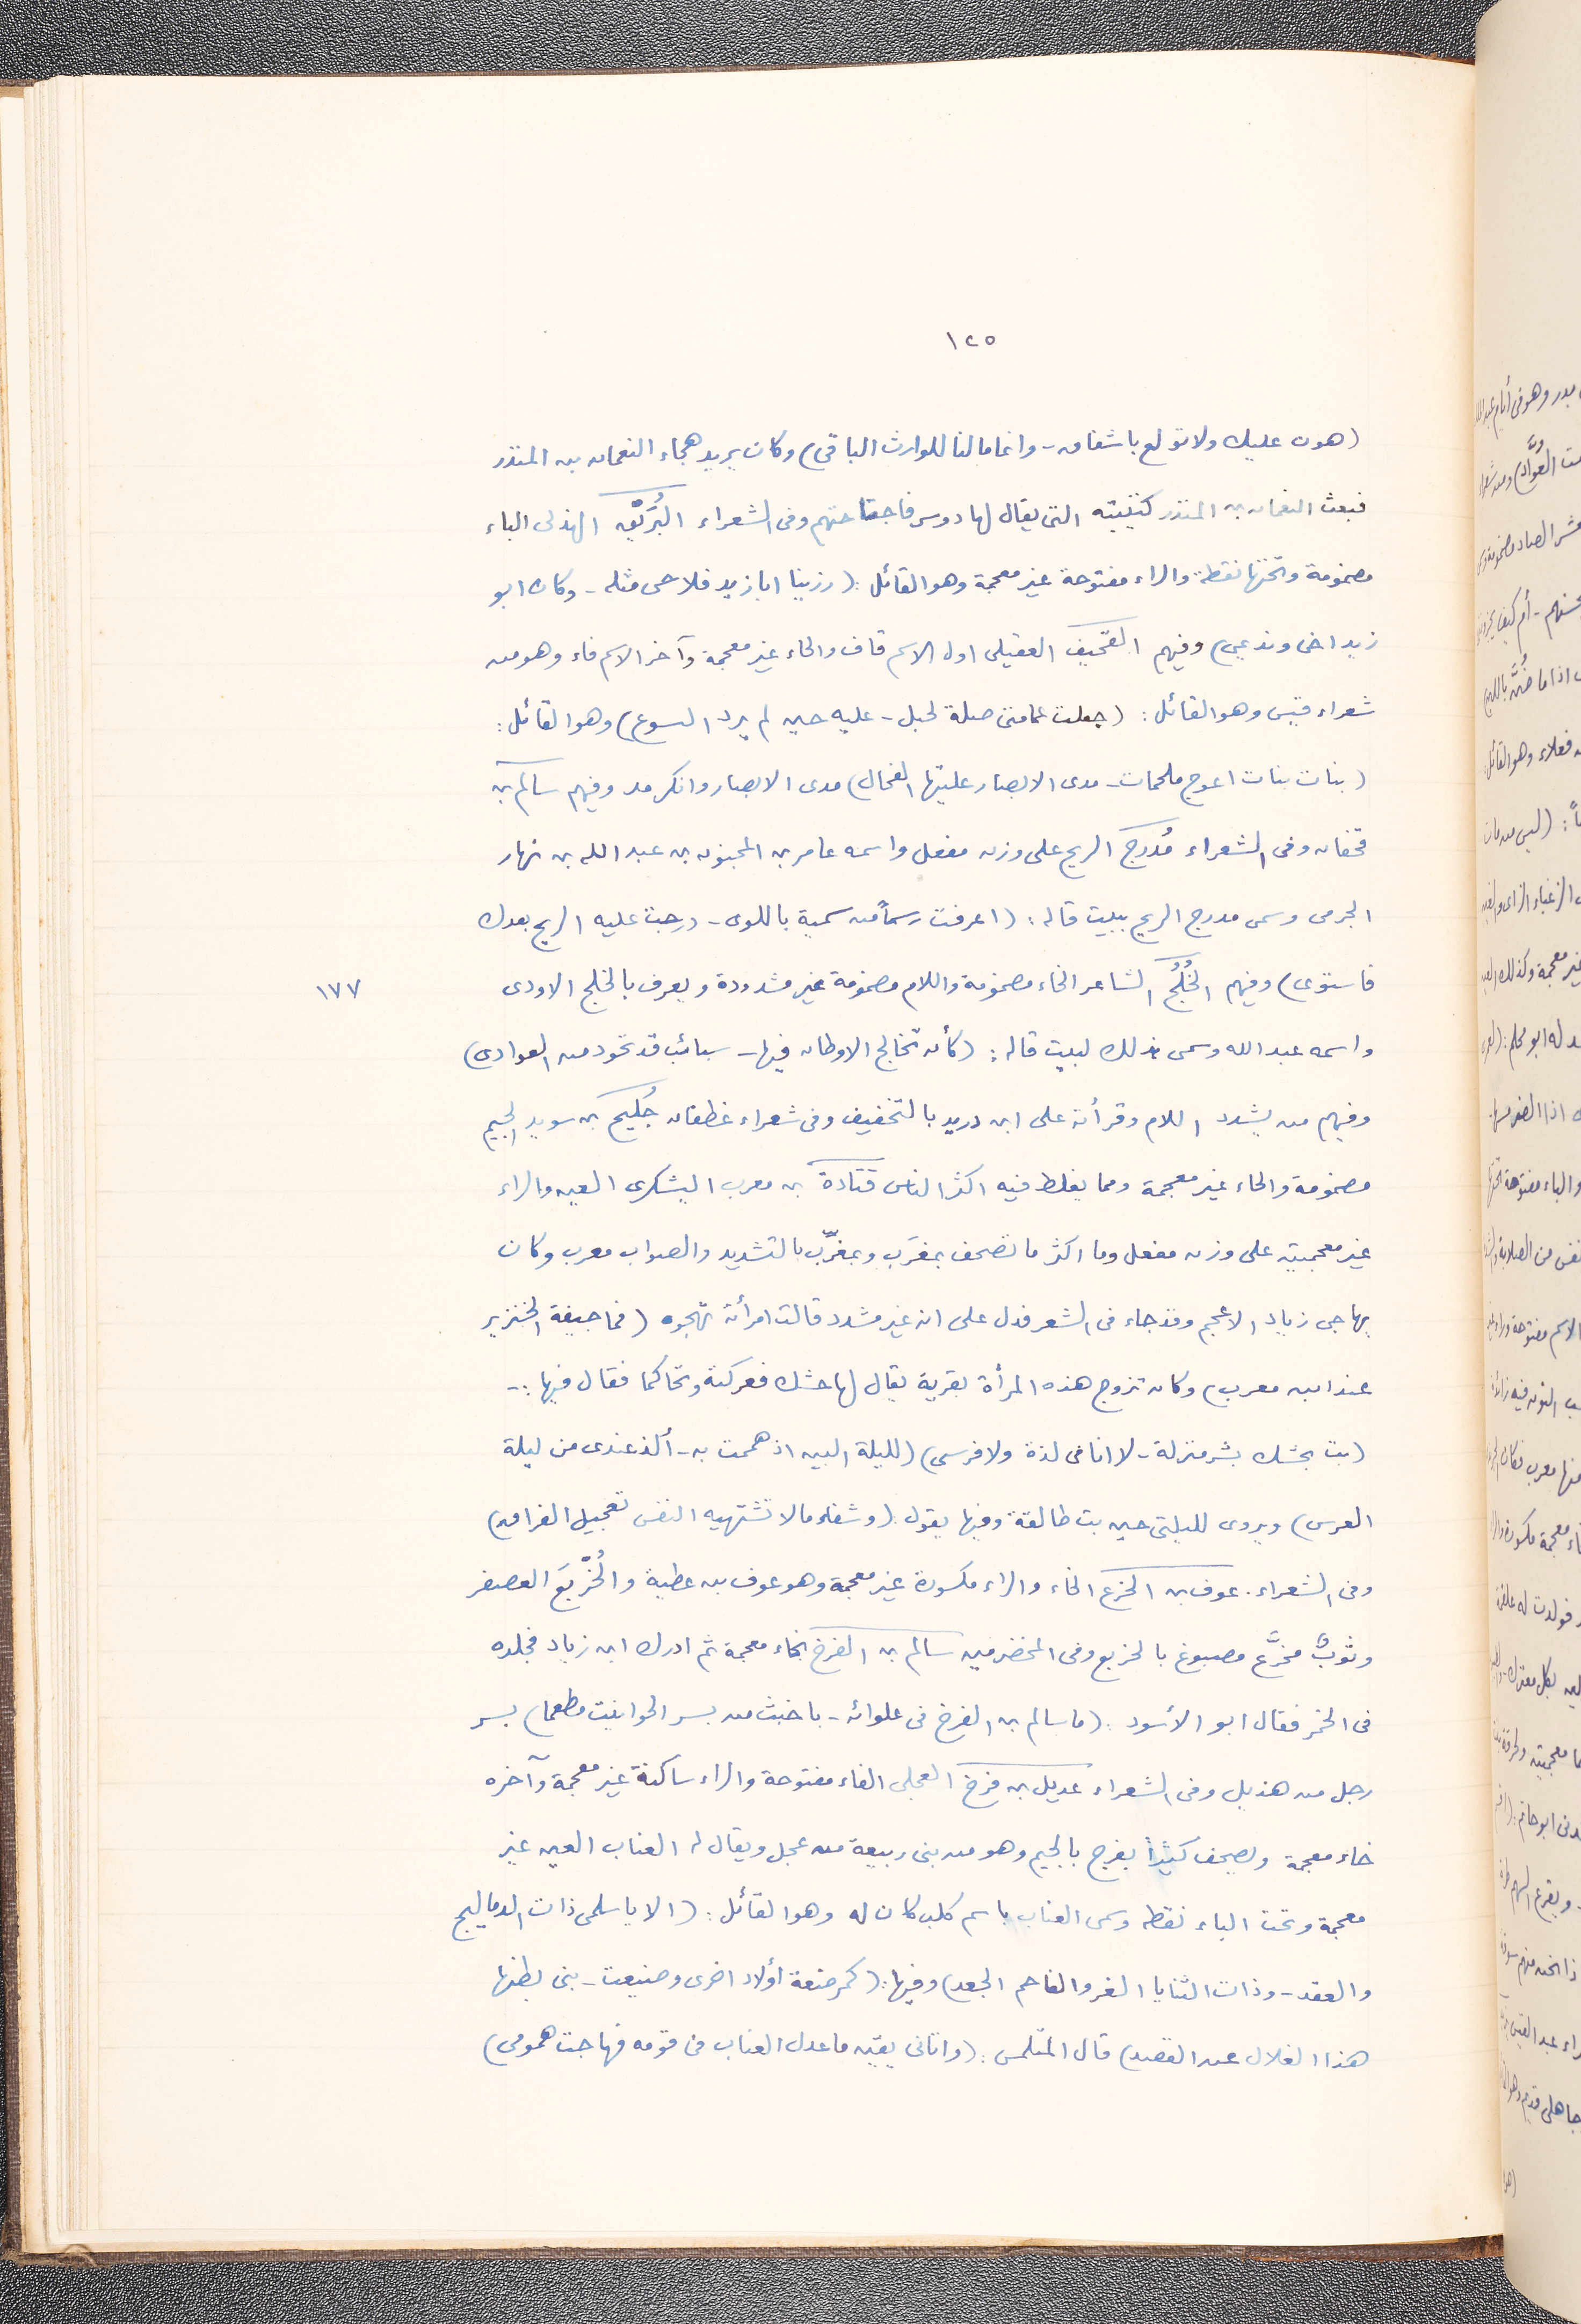 ١٢٥
(هون عليك ولا تولع باشفاق - وانما مالنا للوارث الباقى) وكان يريد هجاء النعمان بن المنذر
فبعث النعمان بن المنذر كتيبته التى يقال لها دوسر فاجتاحتهم وفى الشعراء البُرَيْق الهذلى الباء
مضمومة وتحتها نقطة والراء مفتوحة غير معجمة وهو القائل: (رزينا ابا زيد فلا حى مثله - وكان ابو
زيد اخى ونديمى) وفيهم القحيف العقيلى اول الاسم قاف والحاء غير معجمة وآخر الاسم فاء وهو من
شعراء قيس وهو القائل: (جعلت عمامتى صلة لحبل - عليه حين لم يرد النسوع) وهو القائل:
(بنات بنات اعوج ملحمات - مدى الابصار عليتها الفحال) مدى الابصار وانكر مد وفيهم سالم بن
قحفان وفى الشعراء مُدرج الريح على وزن مفعل واسمه عامر بن المجنون بن عبد الله بن نهار
الجرمى وسمى مدرج الريح ببيت قاله: (اعرفت رسماً من سمية باللوى - درجت عليه الريح بعدك
فاستوى) وفيهم الخُلُجُ الشاعر الخاء مضمومة واللام مضمومة غير مشددة ويعرف بالخلج الاودى
١٧٧
واسمه عبد الله وسمى بذلك لبيت قاله: (كأن تخالج الاوطان فيها - سبائب قد تحود من العوادى)
وفيهم من يشدد اللام وقرأته على ابن دريد بالتخفيف وفى شعراء غطفان جُليح بن سويد الجيم
مضمومة والحاء غير معجمة ومما يغلط فيه اكثر الناس قتادة بن معرب اليشكرى العين والراء
غير معجمتين على وزن مفعل وما اكثر ما تصحف بمغرَب وبمغرَّب بالتشديد والصواب معرب وكان
يهاجى زياد الاعجم وقد جاء فى الشعر فدل على انه غير مشدد قالت امرأته تهجوه (فما جيفة الخنزير
عند ابن معرب) وكان تزوج هذه المرأة بقرية يقال لها حشك فعركته وتحاكما فقال فيها:-
(بت بحشك بشر منزلة - لا انا فى لذة ولا فرسى) (لليلة البين اذ هممت به - ألذ عندى من ليلة
العرس) ويروى لليلتى حين بت طالقة وفيها يقول: (وشفاء مالا تشتهيه النفس تعجيل الفراق)
وفى الشعراء. عوف بن الخرع الخاء والراء مكسورة غير معجمة وهو عوف بن عطية والخُرَّيعَ العصفر
وثوبٌ مخرَّع مصبوغ بالخريع وفى المخضرمين سالم بن الفرخ بخاء معجمة ثم ادرك ابن زياد فجلده
فى الخمر فقال ابو الأسود: (ما سالم بن الفرخ فى علوائه - باخبث من بسر الحوانيت مطعما) بسر
رجل من هذيل وفى الشعراء عديل بن فرخ العجلى الفاء مفتوحة والراء ساكنة غير معجمة وآخره
خاء معجمة ويصحف كثيراً بفرج بالجيم وهو من بنى ربيعة من عجل ويقال له العناب العين غير
معجمة وتحت الباء نقطه وسمى العناب باسم كلب كان له وهو القائل: (الا يا سلمى ذات الدماليج
والعقد - وذات الثنايا الغر والفاحم الجعد) وفيها: (كمرضعة أولاد اخرى وضيعت - بنى بطنها
هذا الضلال عن القصد) قال المتلمس: (واتانى يقين ما عدل العناب فى قومه فهاجت همومى)